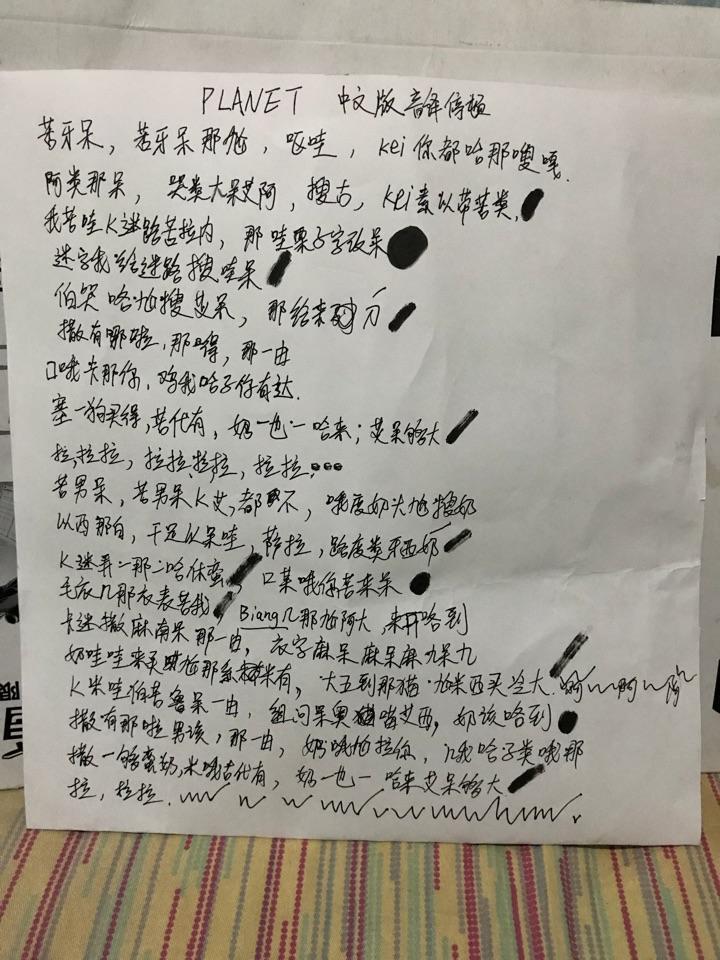 PLANET 中文版音译停顿
苦牙呆，苦牙呆那尬，呕哇，kei你都哈那嗖嘎.
阿类那呆，哭类大呆艾阿，搜古，kei素以带苦类.
我苦哇K迷路苦拉内，那哇栗子字改呆
迷字我给迷路搜哇呆
伯哭咯尬搜艾呆，那给来刀
撒有那啦，那得，那一由
口哦卡那你，鸡我哈子你有达.
塞一狗买得，苦代有，奶一也一哈来；艾呆够大
拉，拉拉，拉拉，拉拉，拉拉
苦男呆，苦男呆K艾，都不，哦度奶头尬搜奶
以西那白，干足以呆哇，萨拉，路度类牙西奶
K迷弄二那二哈休蛮 口莱哦你苦来呆
毛衣几那衣表苦我，Biang几那尬阿大，来哈到
卡迷撒麻南呆那一由，衣字麻呆麻呆麻九呆九
奶哇哇来灭尬那米有，大五到那猫尬米西买兰大.啊阿阿
K米哇伯苦鲁呆一由，组问呆奥嘴艾西，奶该咯到
撒有那啦男该，那一由，奶哦尬拉你，几我哈子类哦那
撒一够蛮奶，米哦古代有，奶一也一哈来艾呆够大
拉，拉拉.